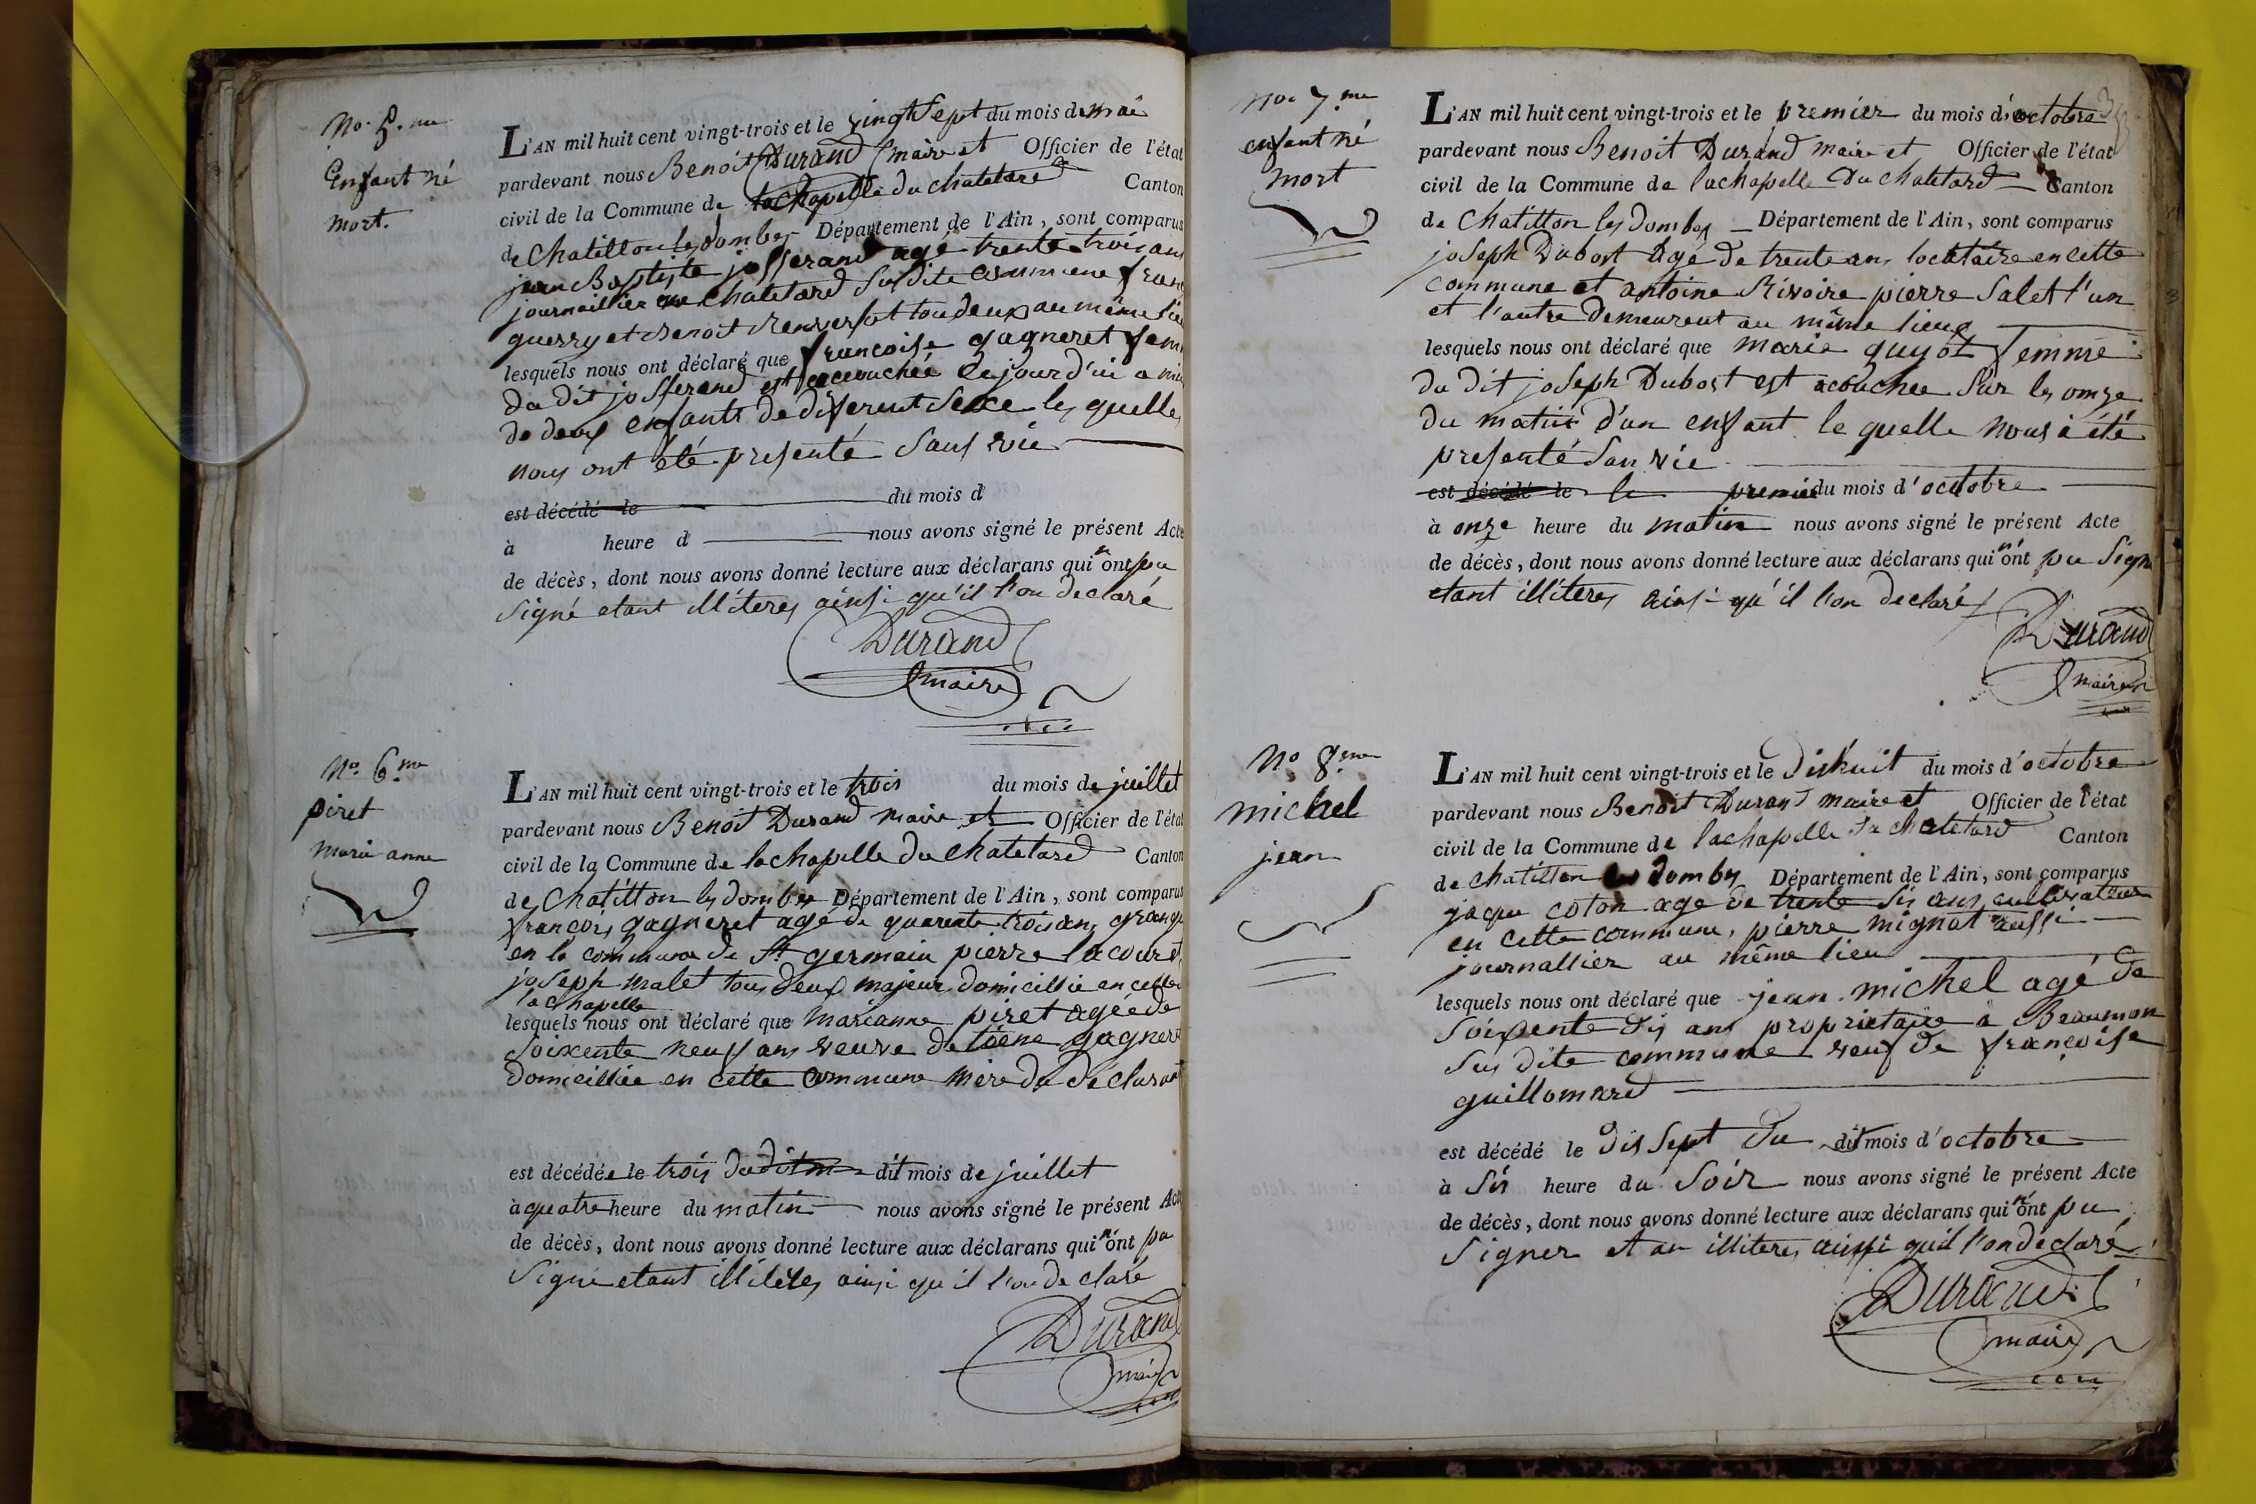 No. 5.me
Enfant né
mort.
L'AN mil huit cent vingt-trois et le vingt Sept du mois de mai
pardevant nous Benoit Durand maire et Officier de l'état
civil de la Commune de lachapelle du chatelard Canton
de Chatillon les dombes Département de l'Ain, sont comparus
jean Baptiste josserand agé trente trois ans
journallier au chatelard Sus dite commune fran
guerry et Benoit Renversot tou deux au même lieu
lesquels nous ont déclaré que francoise gagneret fem
du dit josserand est accouchée ce jour d'ui a mi
de deux enfants de diferent Sexe les quelles
nous ont été presenté Sans vie
est décédé le du mois d
à heure d nous avons signé le présent Acte
de décès, dont nous avons donné lecture aux déclarans qui n'ont pu
Signé etant illiteres ainsi qu'il l'on declaré
Durand
maire
No. 6.me
piret
marie anne
L'AN mil huit cent vingt-trois et le trois du mois de juillet
pardevant nous Benoit Durand maire et Officier de l'état
civil de la Commune de lachapelle du chatelard Canton
de Chatillon les dombes Département de l'Ain, sont comparus
françois gagneret agé de quarente trois ans grange
en la commune de St germain pierre lacour et
joseph malet tous deux majeur domicillié en cette
lachapelle
lesquels nous ont déclaré que marianne piret agée de
Soixente neuf ans veuve de gagneret
domicilliée en cette commune mère du déclarant
est décédée le trois du dit mois de juillet
à quatre heure du matin nous avons signé le présent Acte
de décès, dont nous avons donné lecture aux déclarans qui n'ont pu
Signé etant illiteres ainsi qu'il l'on declaré
Durand
maire
No 7.me
enfant né
mort
L'AN mil huit cent vingt-trois et le premier du mois d'octobre
pardevant nous Benoit Durand maire et Officier de l'état
civil de la Commune de lachapelle Du chatelard Canton
de Chatillon les dombes Département de l'Ain, sont comparus
joseph Dubost agé de trente ans locataire en cette
commune et antoine Rivoire pierre Salet l'un
et l'autre demeurent au même lieux
lesquels nous ont déclaré que marie guyot femme
du dit joseph Dubost est acouchee sur les onze
du matin d'un enfant le quelle nous à été
presenté San vie
est décédé le le premier du mois d'octobre
à onze heure du matin nous avons signé le présent Acte
de décès, dont nous avons donné lecture aux déclarans qui n'ont pu Signé
etant illiteres ainsi qu'il l'on declaré
Durand
maire
No 8.me
michel
jean
L'AN mil huit cent vingt-trois et le dishuit du mois d'octobre
pardevant nous Benoit Durand maire et Officier de l'état
civil de la Commune de lachapelle du chatelard Canton
de chatillon les dombes Département de l'Ain, sont comparus
jaque coton agé de trente Sis ans cultivateur
en cette commune, pierre mignat aussi
journallier au même lieu
lesquels nous ont déclaré que jean michel agé de
Soixente dis ans proprietaire a Beaumon
Sus dite commune veuf de françoise
guillomard
est décédé le dis Sept du dit mois d'octobre
à Sis heure du Soir nous avons signé le présent Acte
de décès, dont nous avons donné lecture aux déclarans qui n'ont pu
Signer etan illiteres ainsi quil l'on déclaré
Durand
maire